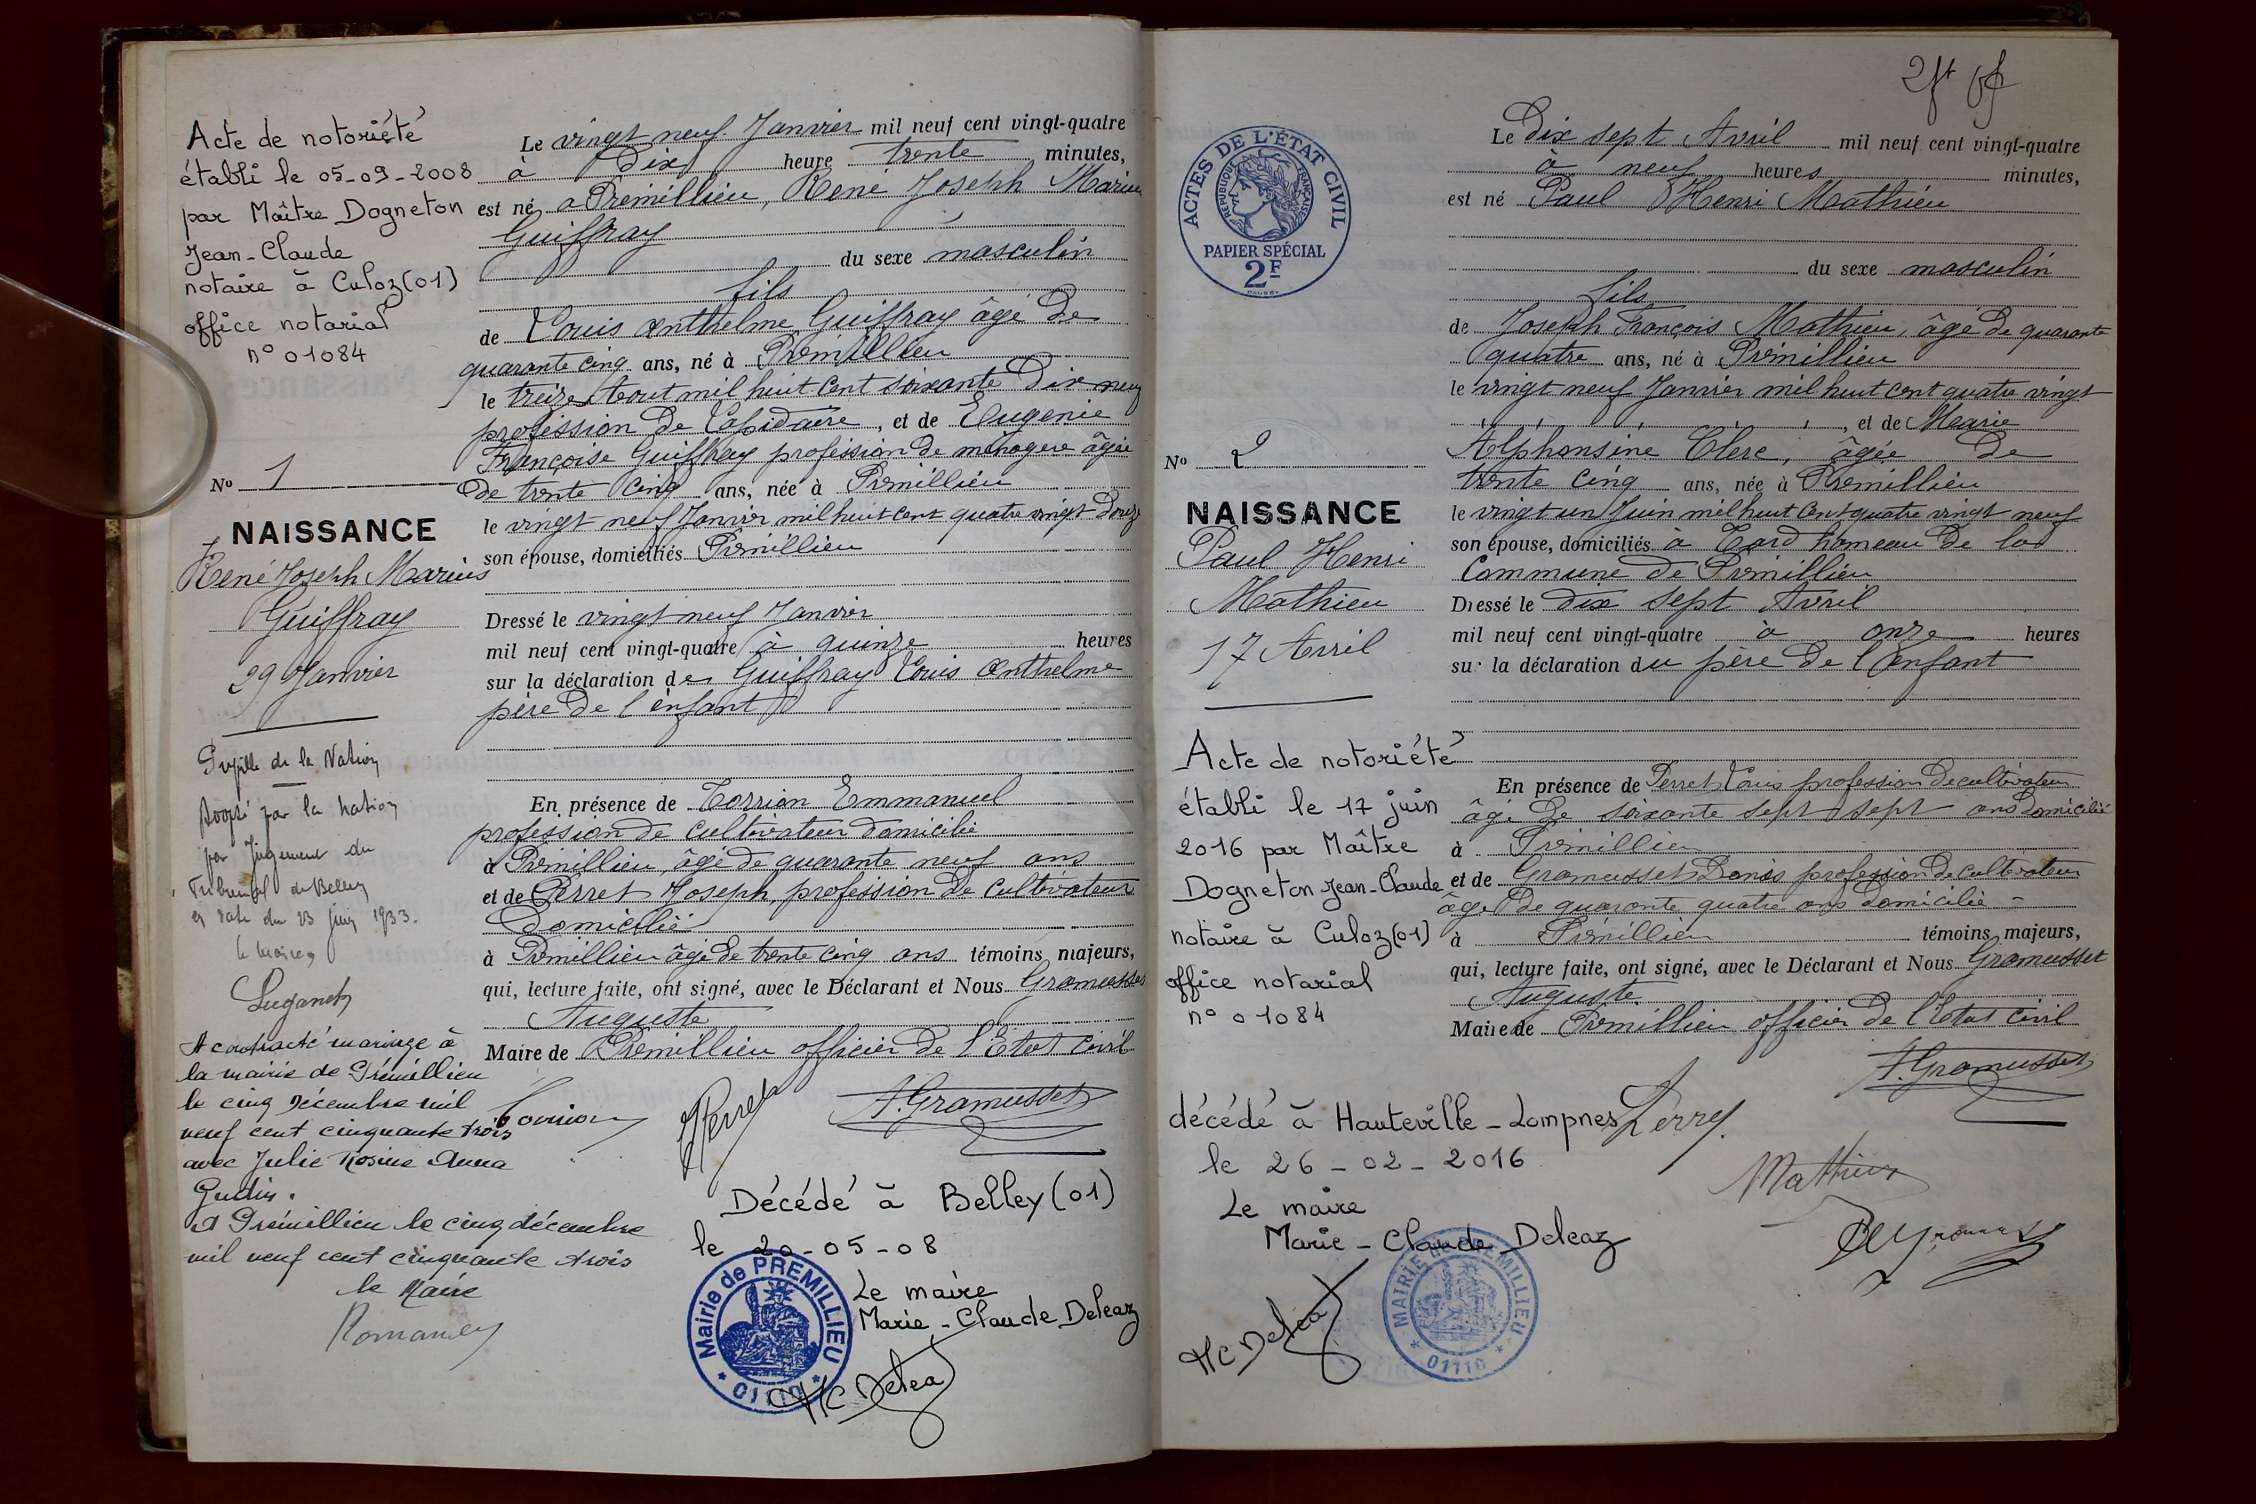 Acte de notoriété
établi le 05-09-2008
par Maître Dogneton
Jean-Claude
notaire à Culoz (01)
office notarial
n° 01084
N° 1
NAISSANCE
René Joseph Marius
Guiffray
29 Janvier
Pupille de la Nation
Adopté par la Nation
par Jugement du
Tribunal de Belley
en date du 23 juin 1933.
le maire,
Luganet
A contracté mariage à
la mairie de Prémillieu
le cinq décembre mil
neuf cent cinquante trois
avec Julie Rosine Anna
Gudin.
A Prémillieu le cinq décembre
mil neuf cent cinquante trois
le Maire
Romaney
Le vingt neuf Janvier mil neuf cent vingt-quatre
à Dix heure trente minutes,
est né a Prémillieu, René Joseph Marius
Guiffray
du sexe masculin
fils
de Louis Anthelme Guiffray âgé de
quarante cinq ans, né à Prémillieu
le treize Aout mil huit cent soixante Dix neuf
profession de Lapidaire, et de Eugenie
Françoise Guiffray profession de ménagère âgée
de trente cinq ans, née à Prémillieu
le vingt neuf Janvier mil huit cent quatre vingt Douze
son épouse, domiciliés Prémillieu
Dressé le vingt neuf Janvier
mil neuf cent vingt-quatre à quinze heures
sur la déclaration de Guiffray Louis Anthelme
père de l'enfant
En présence de Torrion Emmanuel
profession de cultivateur domicilié
à Prémillieu, âgé de quarante neuf ans
et de Perret Joseph, profession de cultivateur
Domicilié
à Prémillieu âgé de trente cinq ans témoins majeurs,
qui, lecture faite, ont signé, avec le Déclarant et Nous Gramusset
Auguste
Maire de Prémillieu officier de l'Etat civil
Torrion
J Perret
A. Gramusset
Décédé à Belley (01)
le 20-05-08
Le maire
Marie-Claude Deleaz
Mairie de PREMILLIEU
* 01110 *
MC Deleaz
2
ACTES DE L'ÉTAT CIVIL
RÉPUBLIQUE FRANÇAISE
PAPIER SPÉCIAL
2F
N° 2
NAISSANCE
Paul Henri
Mathieu
17 Avril
Acte de notoriété
établi le 17 juin
2016 par Maître
Dogneton Jean-Claude
notaire à Culoz (01)
office notarial
n° 01084
Le Dix sept Avril mil neuf cent vingt-quatre
à neuf heures minutes,
est né Paul Henri Mathieu
du sexe masculin
fils
de Joseph François Mathieu, âgé de quarante
quatre ans, né à Prémillieu
le vingt neuf Janvier mil huit cent quatre vingt
, et de Marie
Alphonsine Clerc, âgée de
trente cinq ans, née à Prémillieu
le vingt un Juin mil huit cent quatre vingt neuf
son épouse, domiciliés à Tard hameau de la
Commune de Prémillieu
Dressé le dix sept Avril
mil neuf cent vingt-quatre à onze heures
sur la déclaration du père de l'enfant
En présence de Perret Louis profession de cultivateur
âgé de soixante sept sept ans Domicilié
à Prémillieu
et de Gramusset Denis profession de cultivateur
âgé de quarante quatre ans domicilié -
à Prémillieu témoins majeurs,
qui, lecture faite, ont signé, avec le Déclarant et Nous Gramusset
Auguste
Maire de Prémillieu officier de l'Etat civil
A. Gramusset
Perret
Mathieu
décédé à Hauteville-Lompnes
le 26-02-2016
Le maire
Marie-Claude Deleaz
MAIRIE de PREMILLIEU
* 01110 *
MC Deleaz